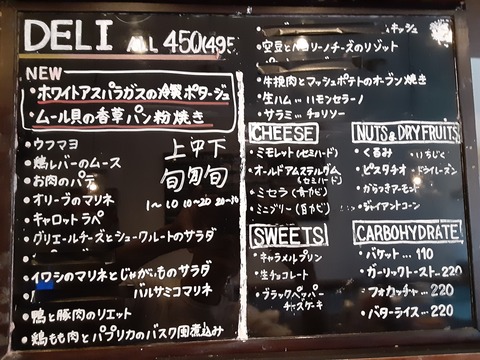 DELI ALL 450(495
NEW
・ホワイトアスパラガスの冷製ポタージュ
・ムール貝の香草パン粉焼き
・ウフマヨ
・鶏レバーのムース
・お肉のパテ
・オリーブのマリネ
・キャロットラペ
・グリエールチーズとシュークルートのサラダ
・イワシのマリネとじゃがいものサラダ
バルサミコマリネ
・鴨と豚肉のリエット
・鶏もも肉とパプリカのバスク風煮込み
上中下
旬旬旬
1〜10 10〜20 20〜30
キッシュ
・空豆とペコリーノチーズのリゾット
・牛挽肉とマッシュポテトのオーブン焼き
・生ハム ハモンセラーノ
・サラミ チョリソー
CHEESE
・ミモレット(セミハード)
・オールドアムステルダム
(セミハード)
・ミセラ(青カビ)
(白カビ)
SWEETS
・キャラメルプリン
・生チョコレート
・ブラックペッパー
チーズケーキ
NUTS & DRY FRUITS
・くるみ ・いちじく
・ピスタチオ ・ドライレーズン
アーモンド
・ジャイアントコーン
CARBOHYDRATE
・バケット… 110
・ガーリックトースト… 220
・フォカッチャ… 220
・バターライス… 220